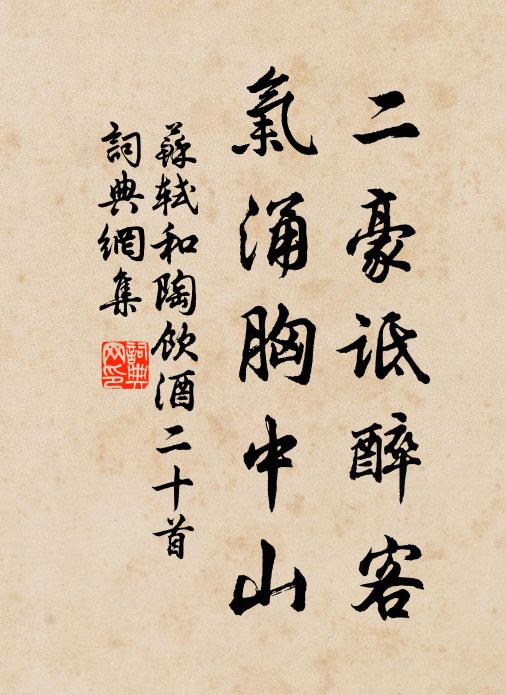 二豪詆醉客
氣涌胸中山
蘇軾和陶飲酒二十首
詞典網集
詞典網印